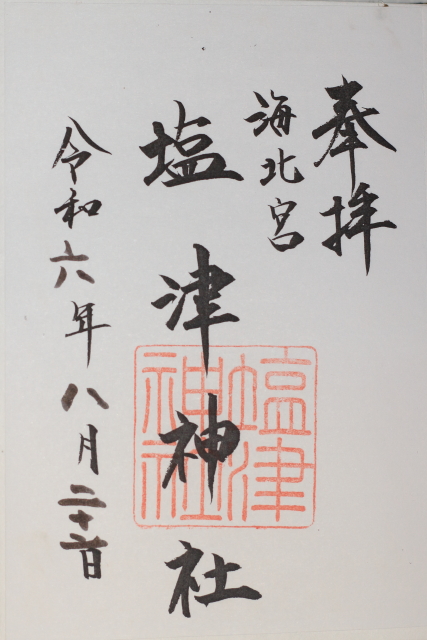 奉拝
海北宮
塩津神社
塩津神社
令和六年八月二十六日